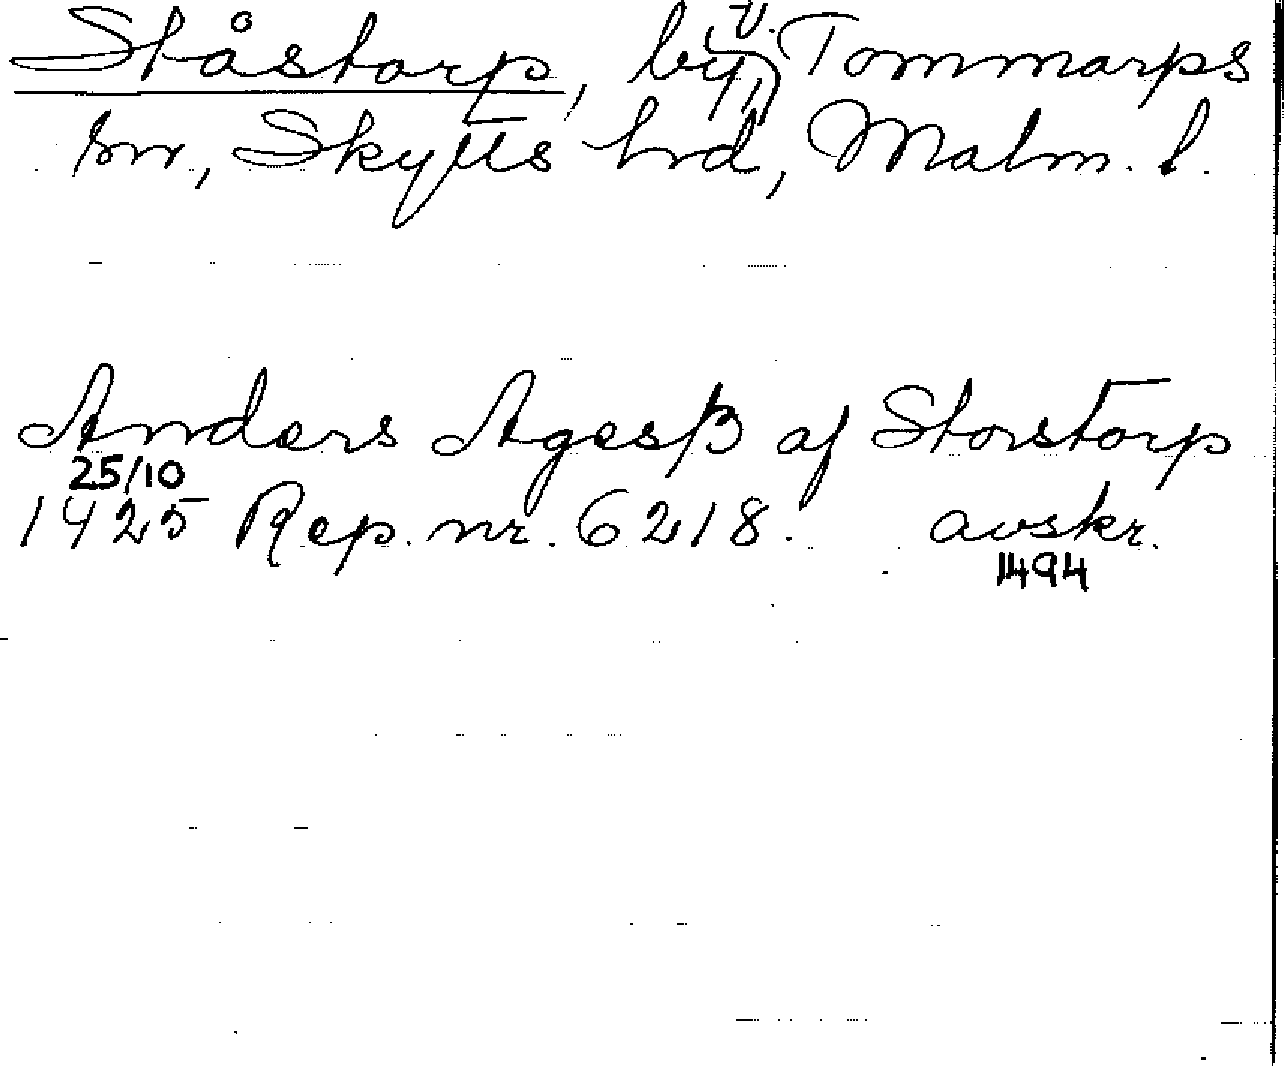 Ståstorp, by (V. Tommarps
sn, Skytts hrd, Malm. l.
Anders Agesß af Storstorp
25/10
1425 Rep. nr. 6218. avskr.
1494